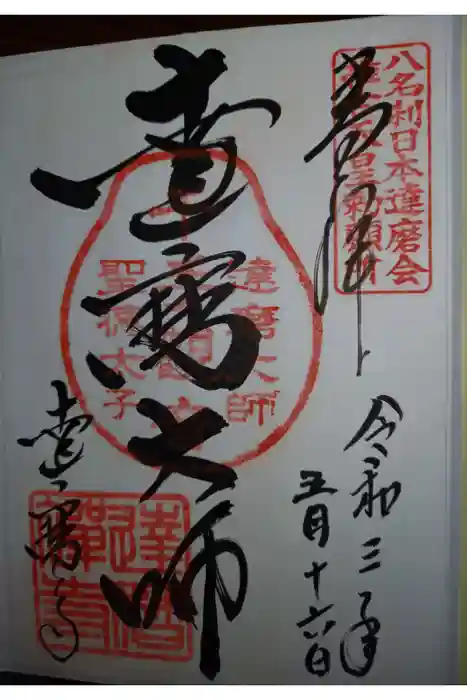 八名刹日本達磨会
雄略天皇勅願所
奉拝
令和三年
五月十六日
達磨大師
達磨大師
聖徳太子
達磨寺
達磨禅寺